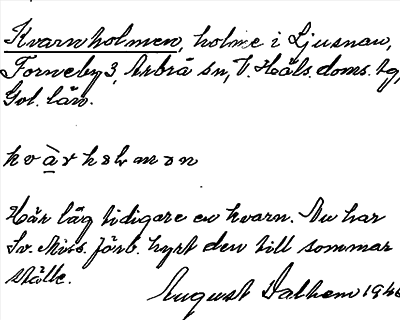 Kvarnholmen, holme i Ljusnan,
Forneby 3, Arbrå sn, V. Häls. doms. tg,
Gvl. län.
Här låg tidigare en kvarn. Nu har
Sv. Miss. förb. hyrt den till sommar
ställe.
August Dalhem 1946